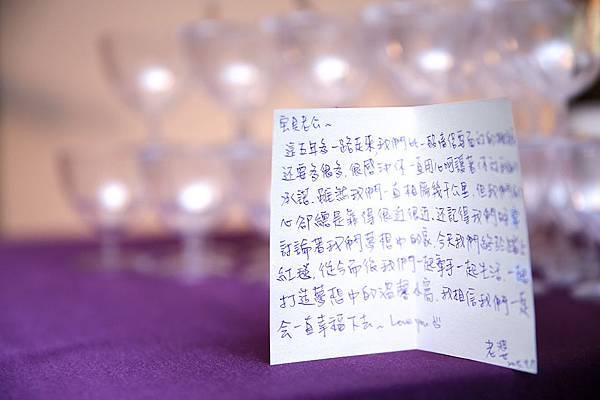 老公~
這五年多一路走來我們比一般情侶
還要多很多,很感動你一直用心呵護著
承諾,雖然我們一直相隔幾千公里,但我們
心卻總是靠得很近很近,還記得我們
討論著我們夢想中的家,今天我們終於踏上
紅毯,從今而後我們一起牽手一起生活,一起
打造夢想中的溫馨小窩,我相信我們一定
會一直幸福下去~ Love you
老婆